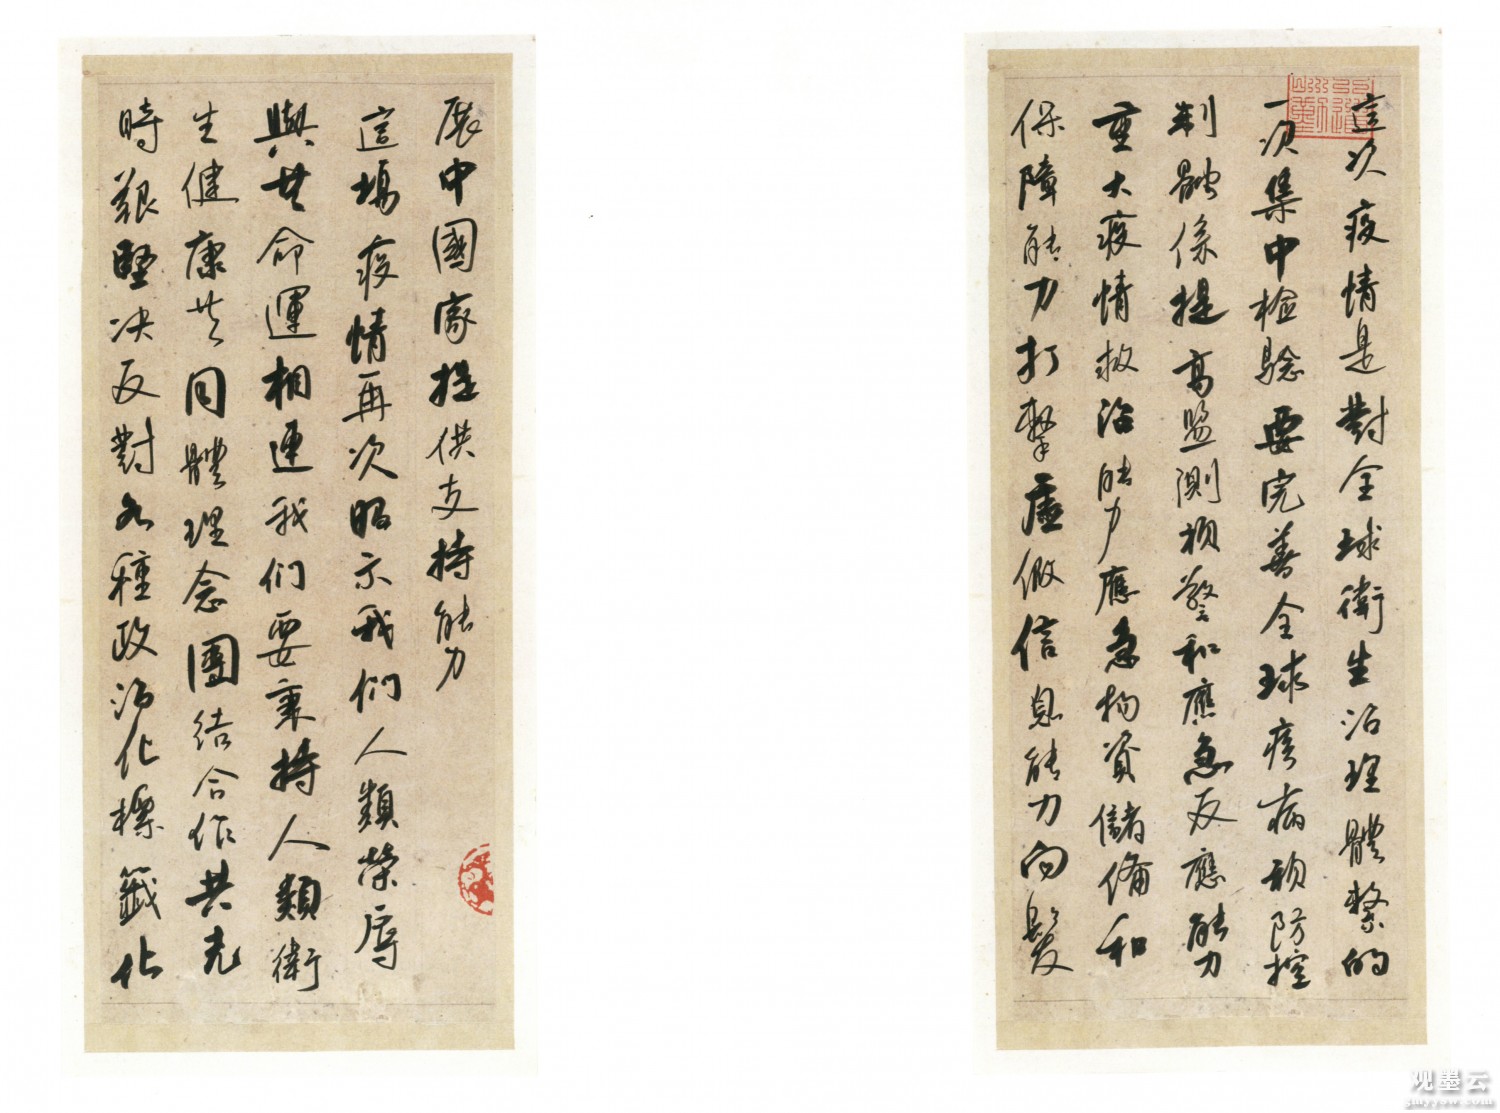 這次疫情是對全球衛生治理體系的
一次集中檢驗要完善全球疾病預防控
制體係提高監測預警和應急反應能力
重大疫情救治能力應急物資儲備和
保障能力打擊虛假信息能力向發
展中國家提供支持能力
這場疫情再次昭示我们人類榮辱
與共命運相連我们要秉持人類衛
生健康共同體理念團結合作共克
時艱堅决反對各種政治化標籤化
观墨云
gmyyow.com